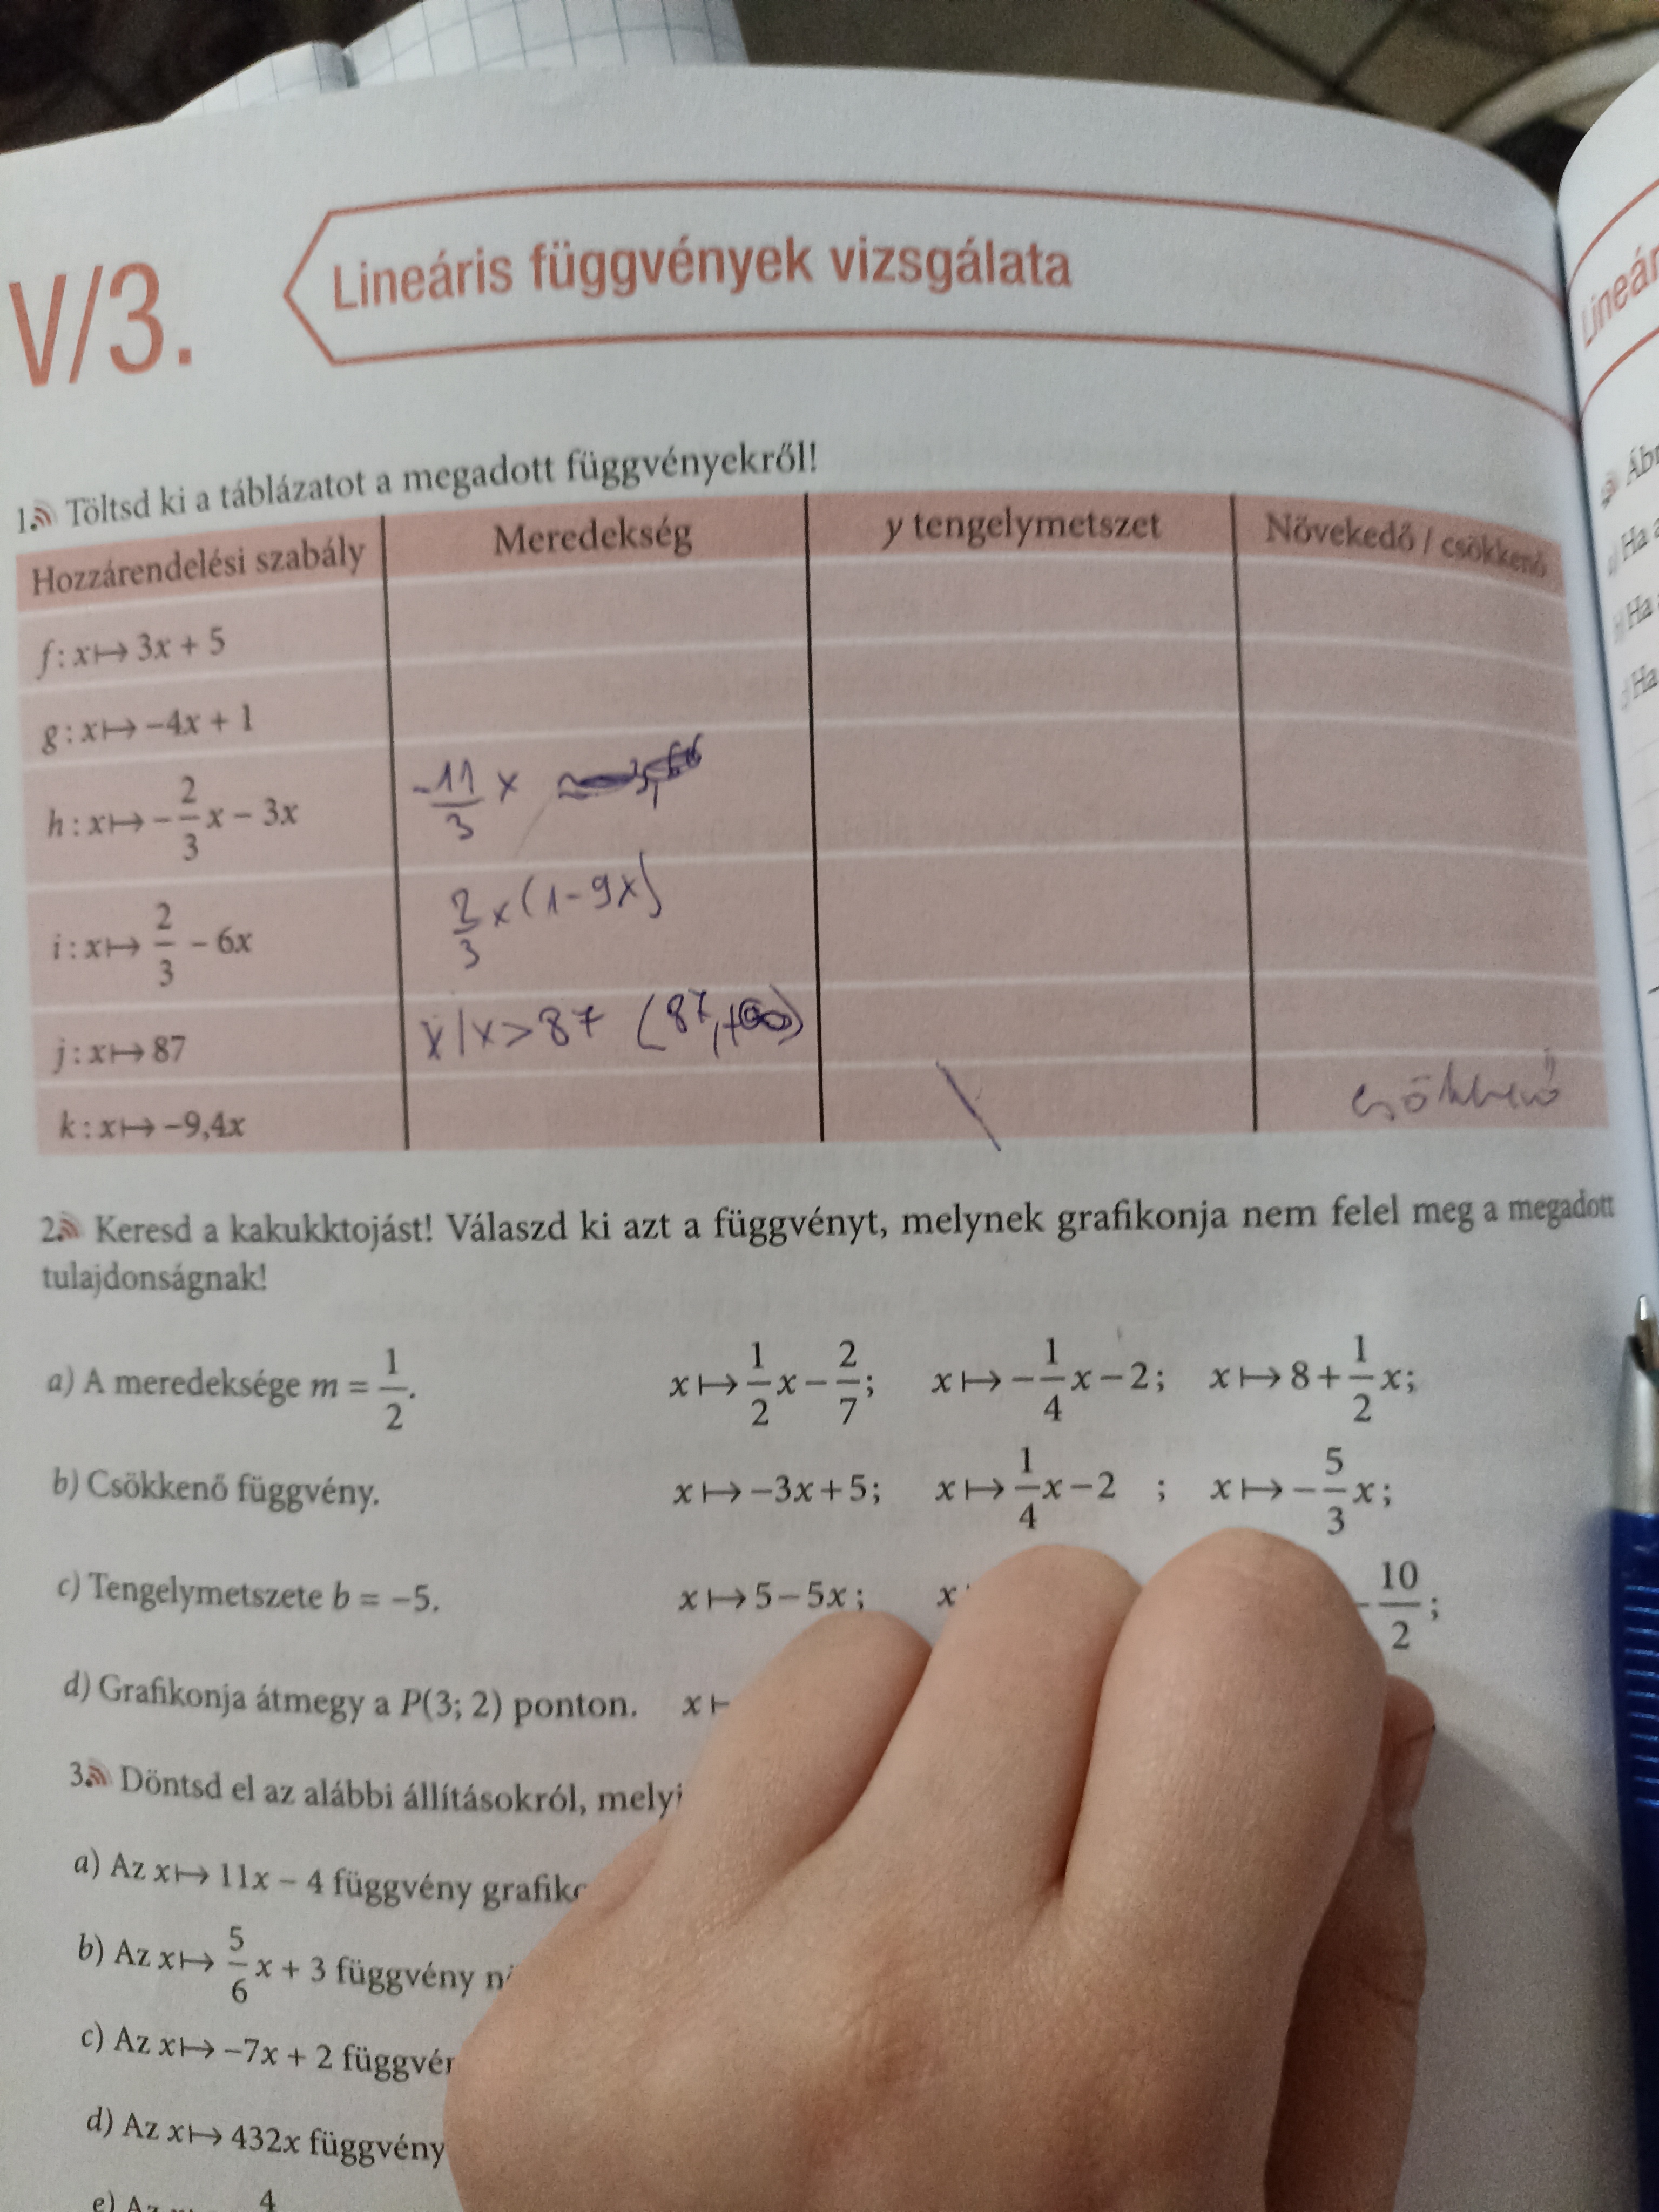 V/3.
Lineáris függvények vizsgálata
1. Töltsd ki a táblázatot a megadott függvényekről!
Hozzárendelési szabály Meredekség y tengelymetszet Növekedő / csökkenő
f : x ↦ 3x + 5
g : x ↦ −4x + 1
h : x ↦ −2/3 x − 3x -11/3 x
i : x ↦ 2/3 − 6x 2/3 x (1-9x)
j : x ↦ 87 x/x>87 (87,+∞)
k : x ↦ −9,4x \ csökkenő
2. Keresd a kakukktojást! Válaszd ki azt a függvényt, melynek grafikonja nem felel meg a megadott
tulajdonságnak!
a) A meredeksége m = 1/2. x ↦ 1/2 x − 2/7; x ↦ −1/4 x − 2; x ↦ 8 + 1/2 x;
b) Csökkenő függvény. x ↦ −3x + 5; x ↦ 1/4 x − 2 ; x ↦ −5/3 x;
c) Tengelymetszete b = −5. x ↦ 5 − 5x; x − 10/2;
d) Grafikonja átmegy a P(3; 2) ponton. x
3. Döntsd el az alábbi állításokról,
a) Az x ↦ 11x − 4 függvény
b) Az x ↦ 5/6 x + 3 függvény
c) Az x ↦ −7x + 2
d) Az x ↦ 432x függvény
e) Az 4
Lineár
Ha
Ha
Ha